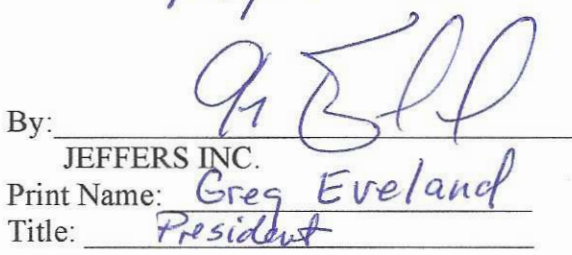 By:
JEFFERS INC.
Print Name: Greg Eveland
Title: President